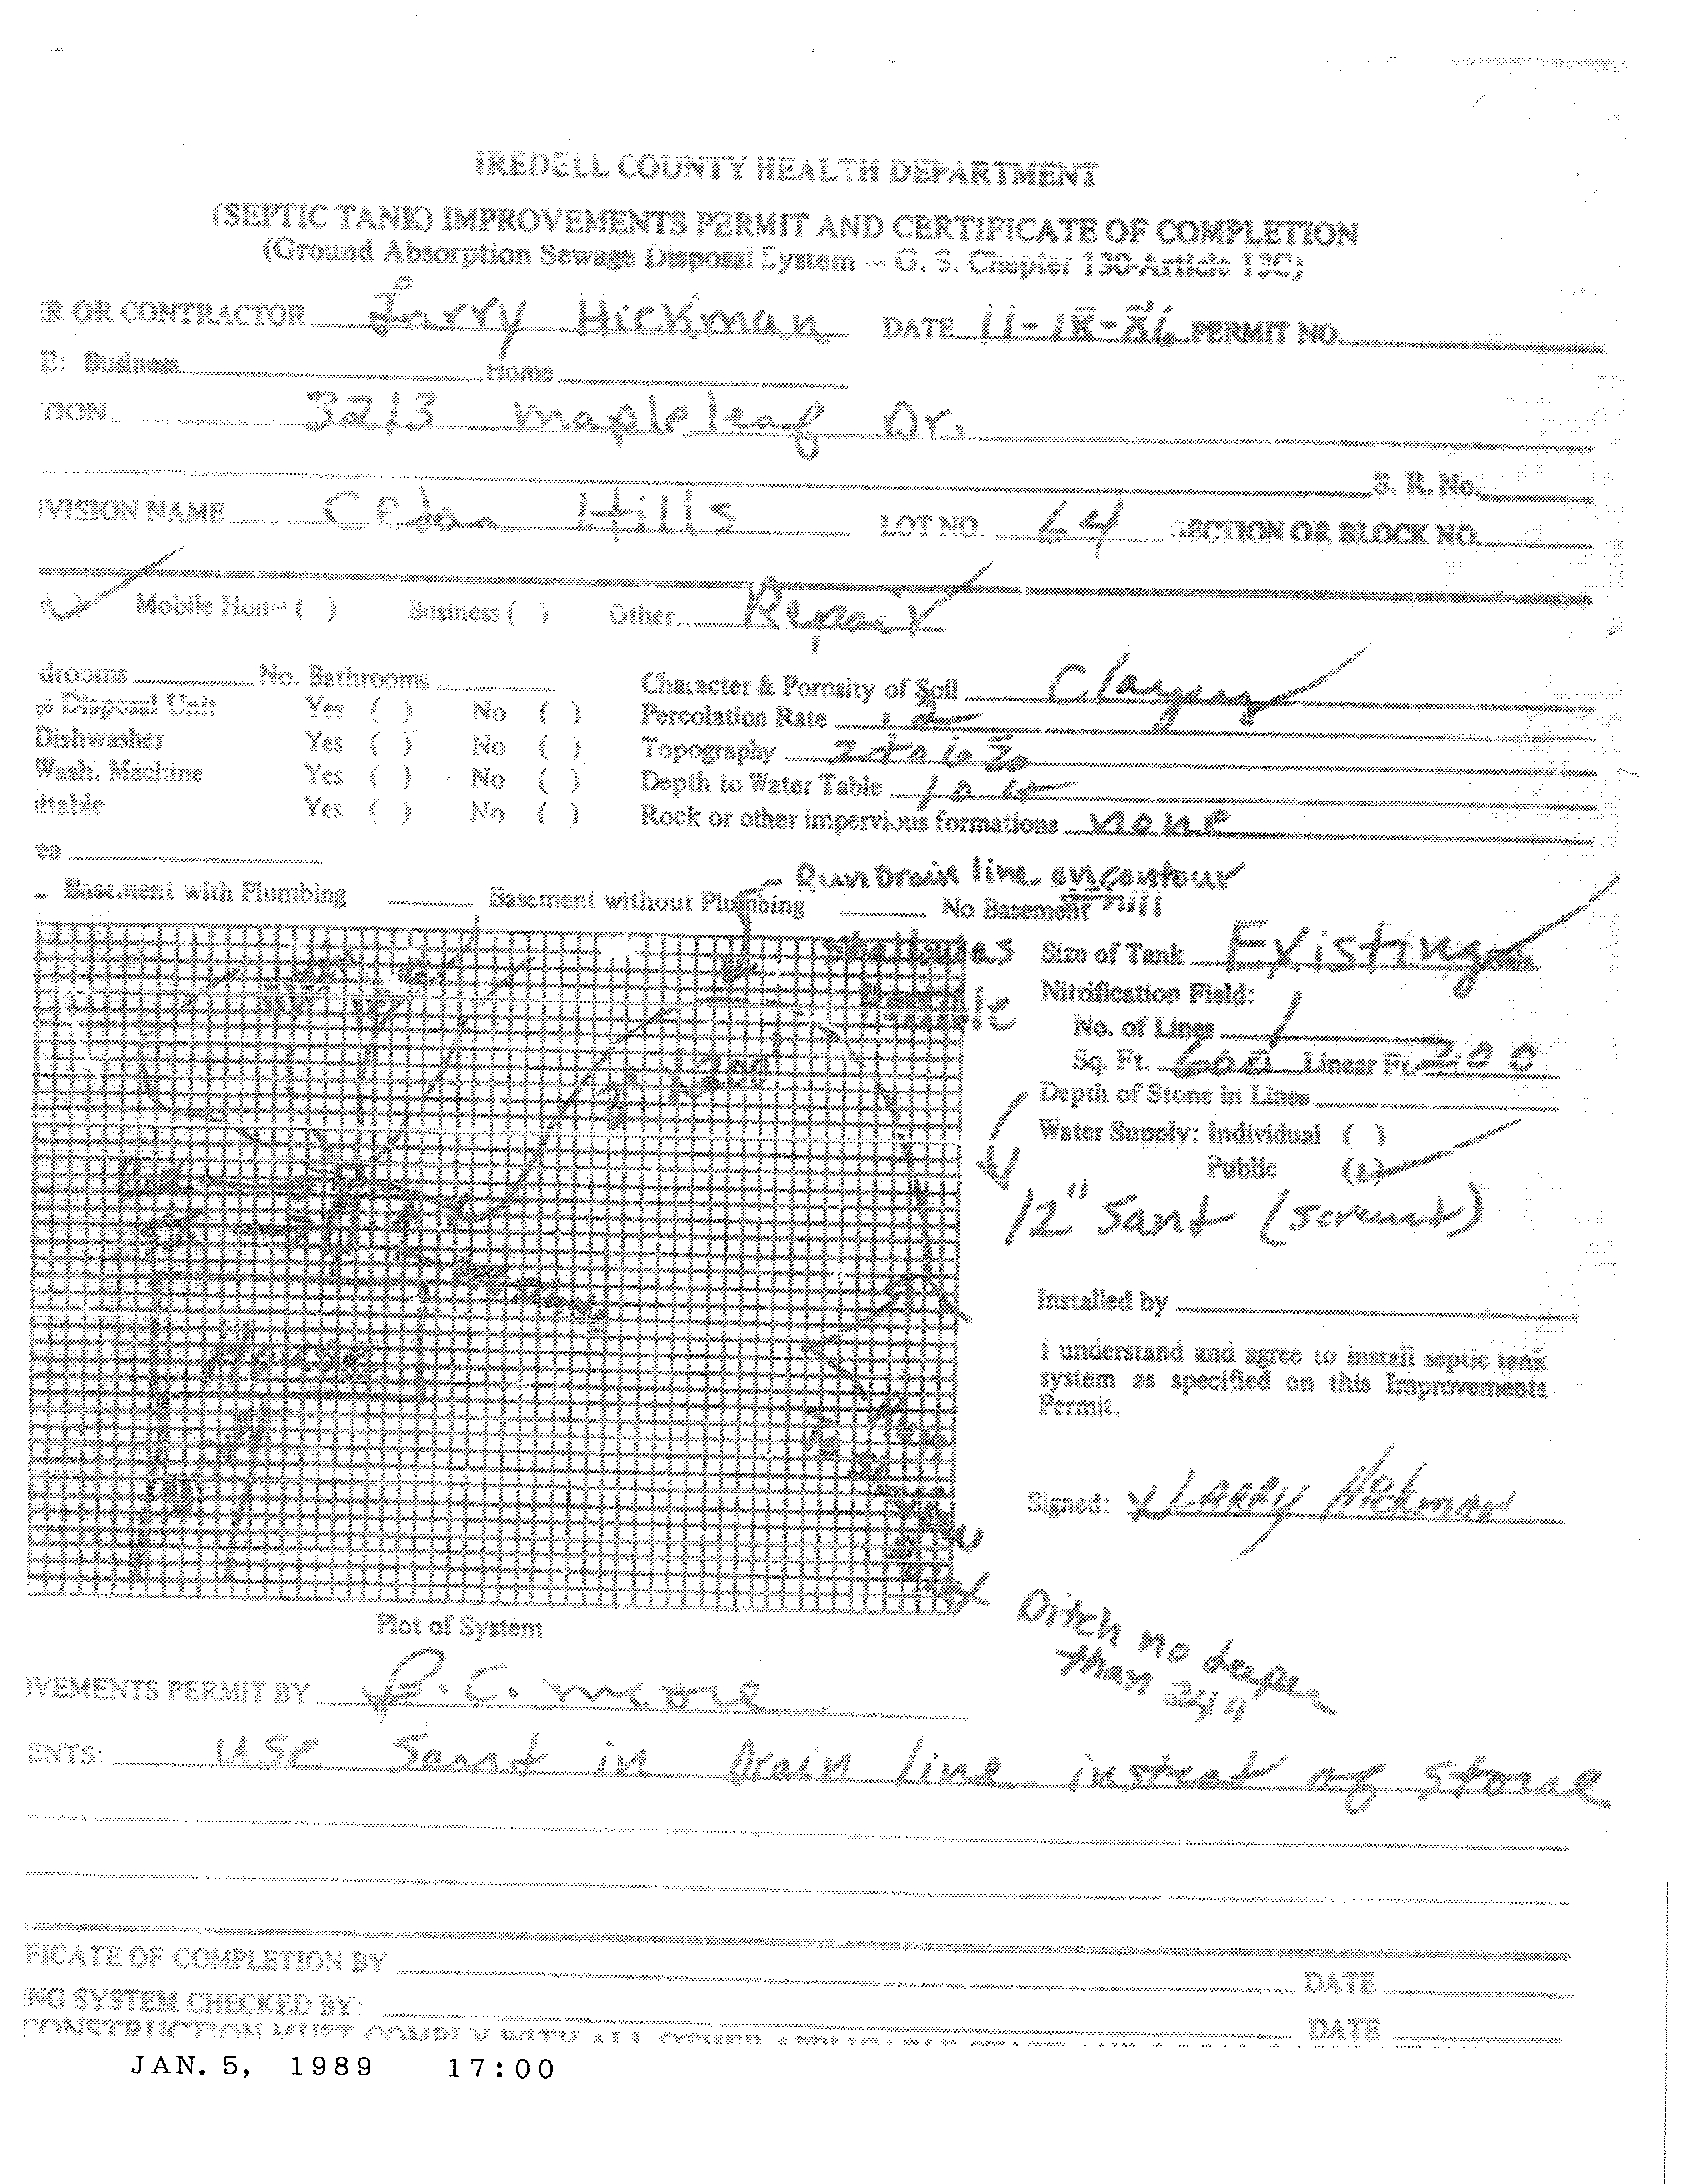 IREDELL COUNTY HEALTH DEPARTMENT
(SEPTIC TANK) IMPROVEMENTS PERMIT AND CERTIFICATE OF COMPLETION
(Ground Absorption Sewage Disposal System -- G. S. Chapter 130-Article 13C)
R OR CONTRACTOR Larry Hickman DATE PERMIT NO.
E: Business Home
TION 3213 mapleleaf Dr.
S. R. No.
VISION NAME Hills LOT NO. 64 SECTION OR BLOCK NO.
Mobile Home ( ) Business ( ) Other Repair
drooms No. Bathrooms Character & Porosity of Soil Clayey
Disposal Unit Yes ( ) No ( ) Percolation Rate
Dishwasher Yes ( ) No ( ) Topography
Wash. Machine Yes ( ) No ( ) Depth to Water Table
Yes ( ) No ( ) Rock or other impervious formations none
ea
Run Drain line on contour
Basement with Plumbing Basement without Plumbing No Basement
Size of Tank Existing
Nitrification Field:
No. of Lines 1
Sq. Ft. 600 Linear Ft. 200
Depth of Stone in Lines
Water Supply: Individual ( )
Public (L)
12" Sant
House
Installed by
I understand and agree to install septic tank
system as specified on this Improvements
Permit.
Signed: x LARRY Hickman
Plot of System
Ditch no deeper
than 24"
OVEMENTS PERMIT BY
ENTS: use Sant in Drain line insteat of stone
FICATE OF COMPLETION BY DATE
NG SYSTEM CHECKED BY: DATE
CONSTRUCTION MUST COMPLY WITH ALL OTHER
JAN. 5, 1989 17:00